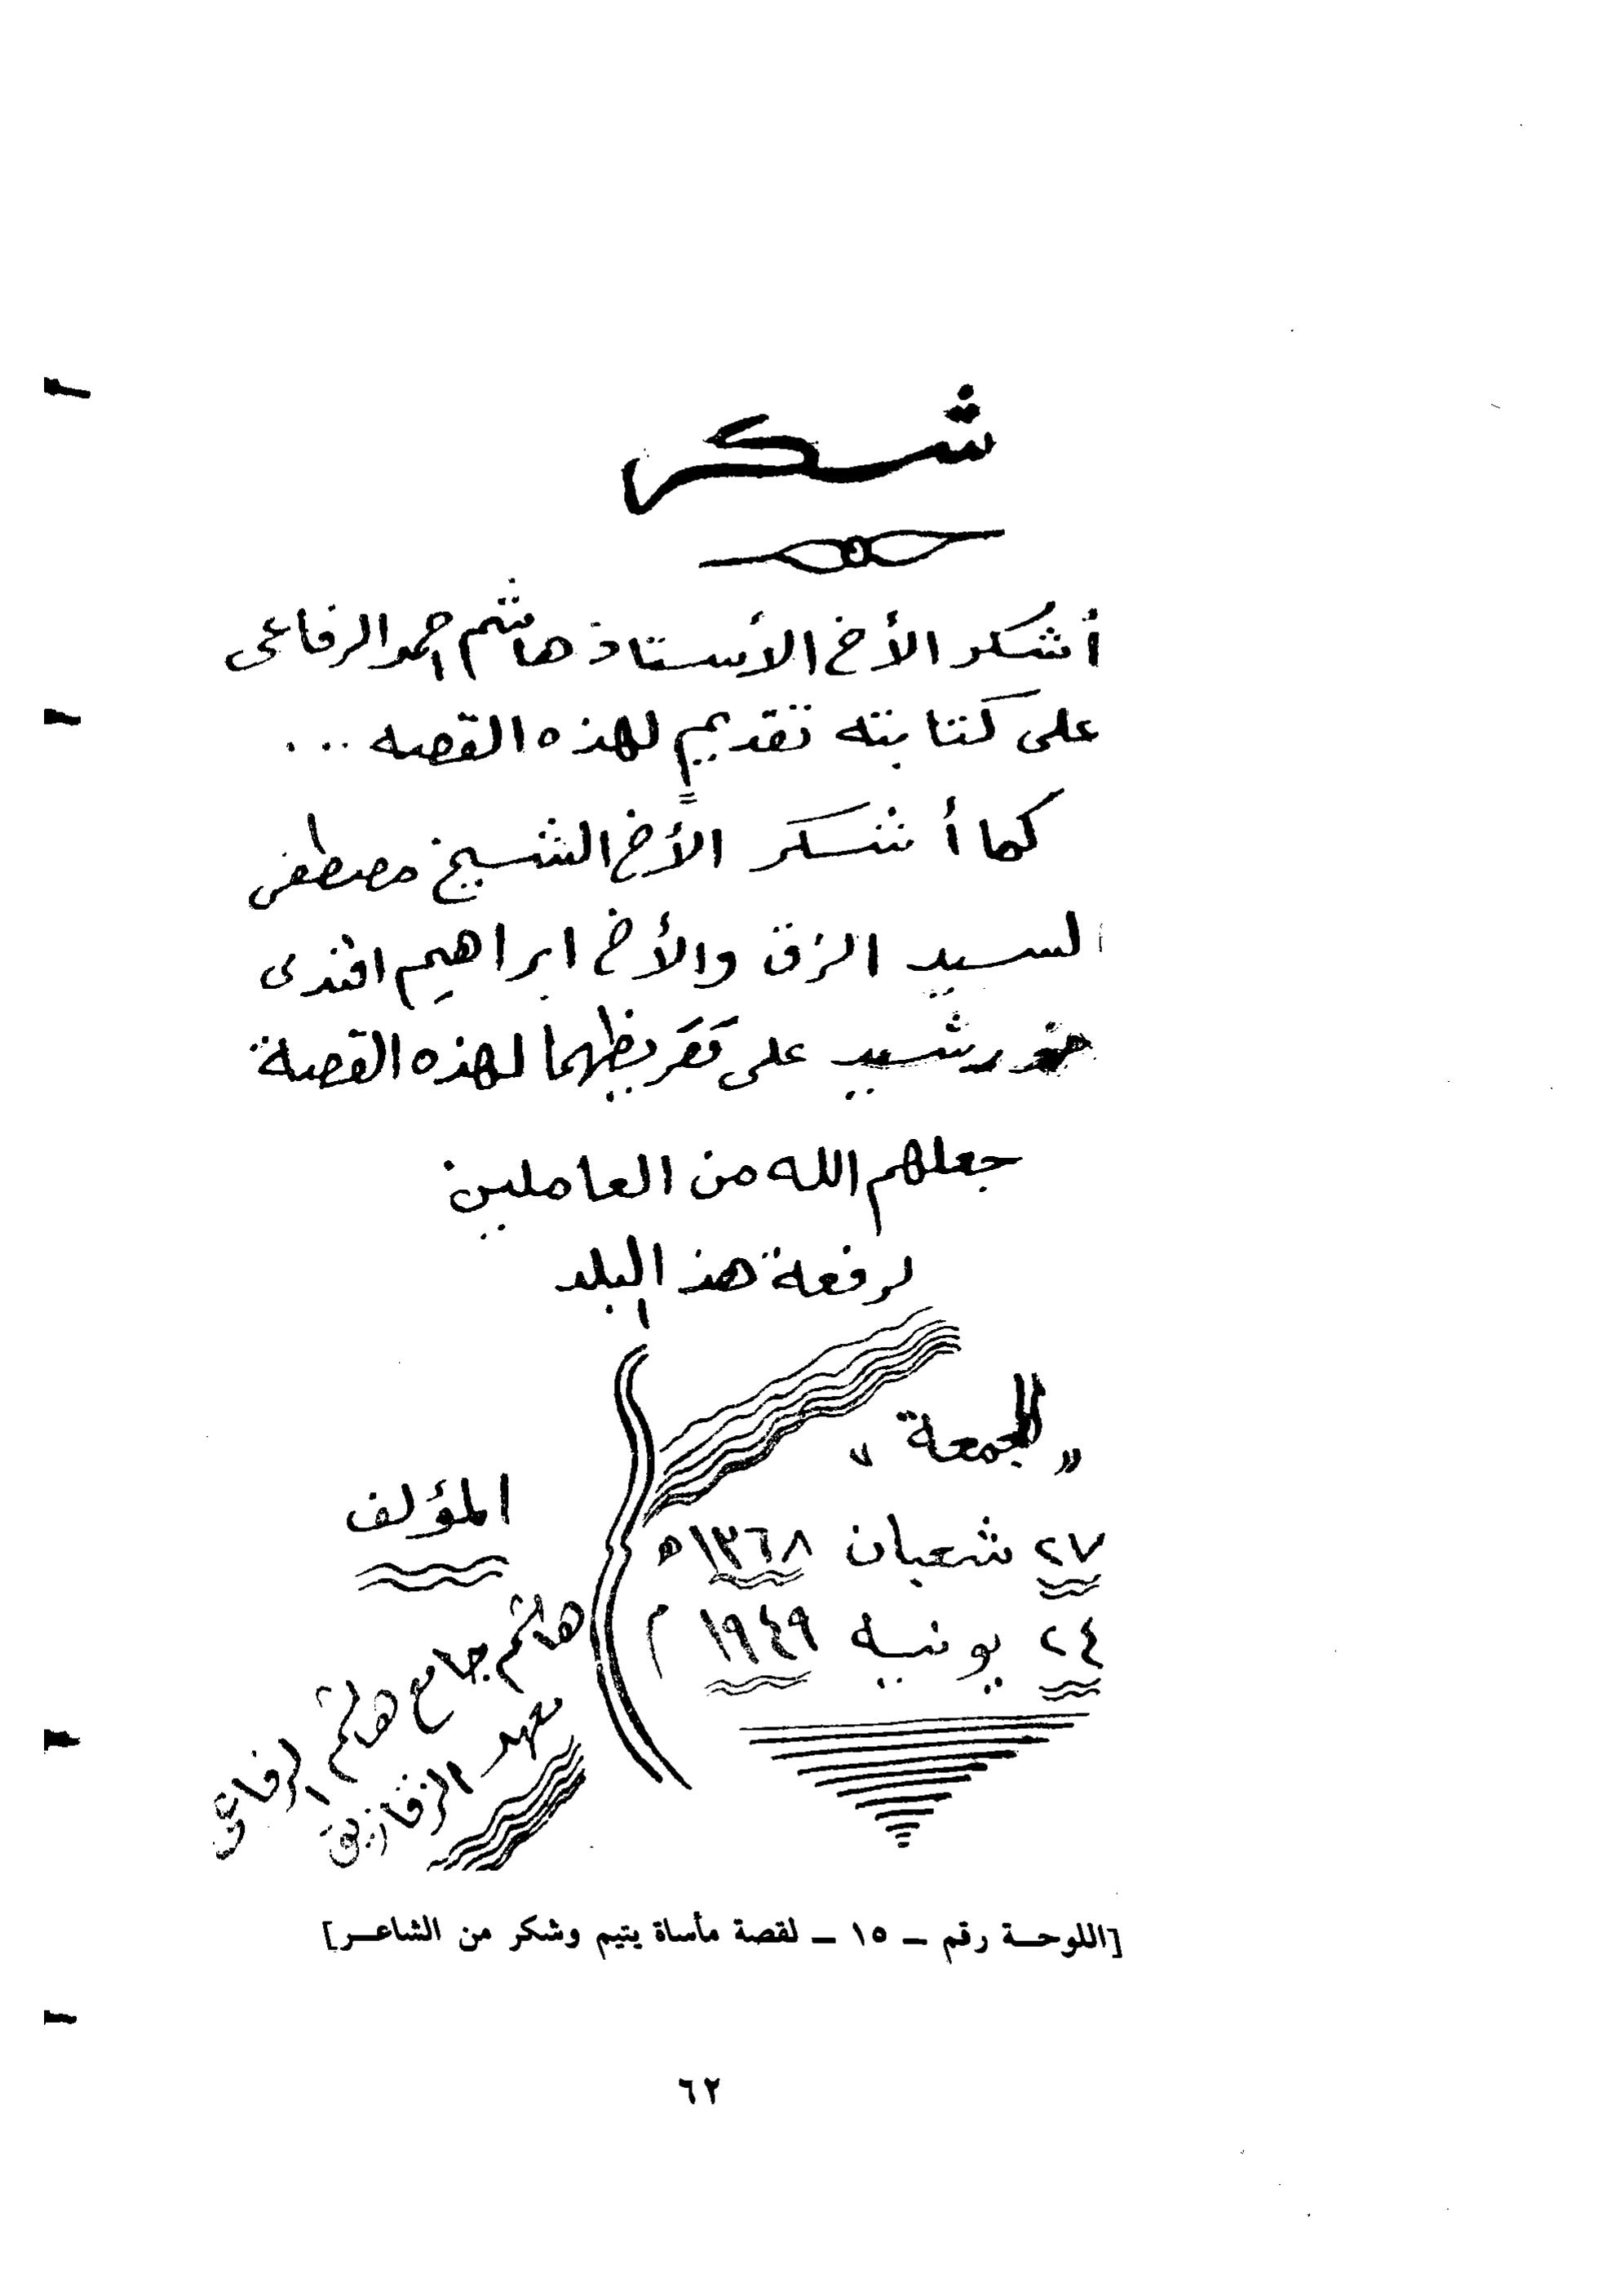 شكر
أشكر الأخ الأستاذ هاشم احمد الرفاعى
على كتابته تقديمٍ لهذه القصه ...
كما أشكر الأخ الشيخ مصطفى
السيد الزق والأخ ابراهيم افندى
خورشيد على تقريظهما لهذه القصة
جعلهم الله من العاملين
لرفعة هذ البلد
" الجمعة "
٢٧ شعبان ١٣٦٨ ه
٢٤ يونيه ١٩٤٩ م
المؤلف
هاشم جامع هاشم الرفاعى
معهد الزقازيق
[اللوحة رقم - ١٥ - لقصة مأساة يتيم وشكر من الشاعر]
٦٢